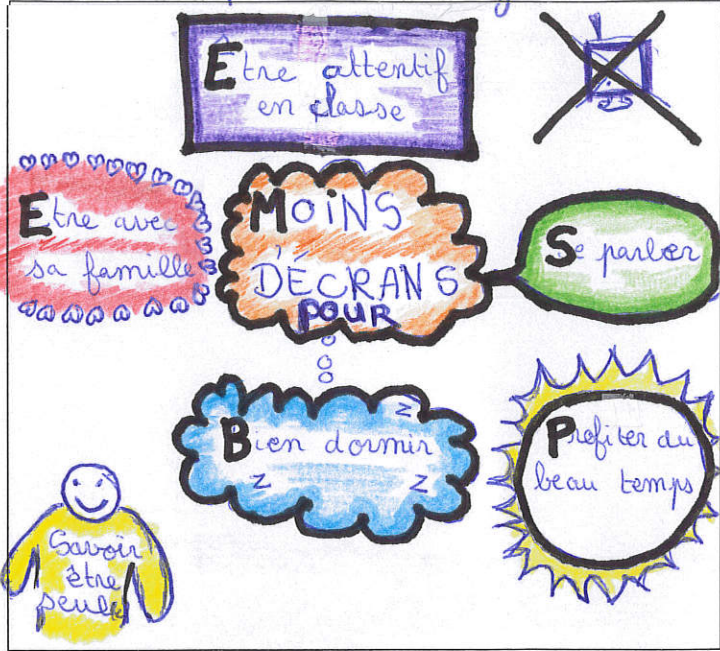 Être attentif
en classe
Etre avec
sa famille
MOINS
D'ÉCRANS
POUR
Se parler
Bien dormir
z
z
z
Profiter du
beau temps
Savoir
être
seul